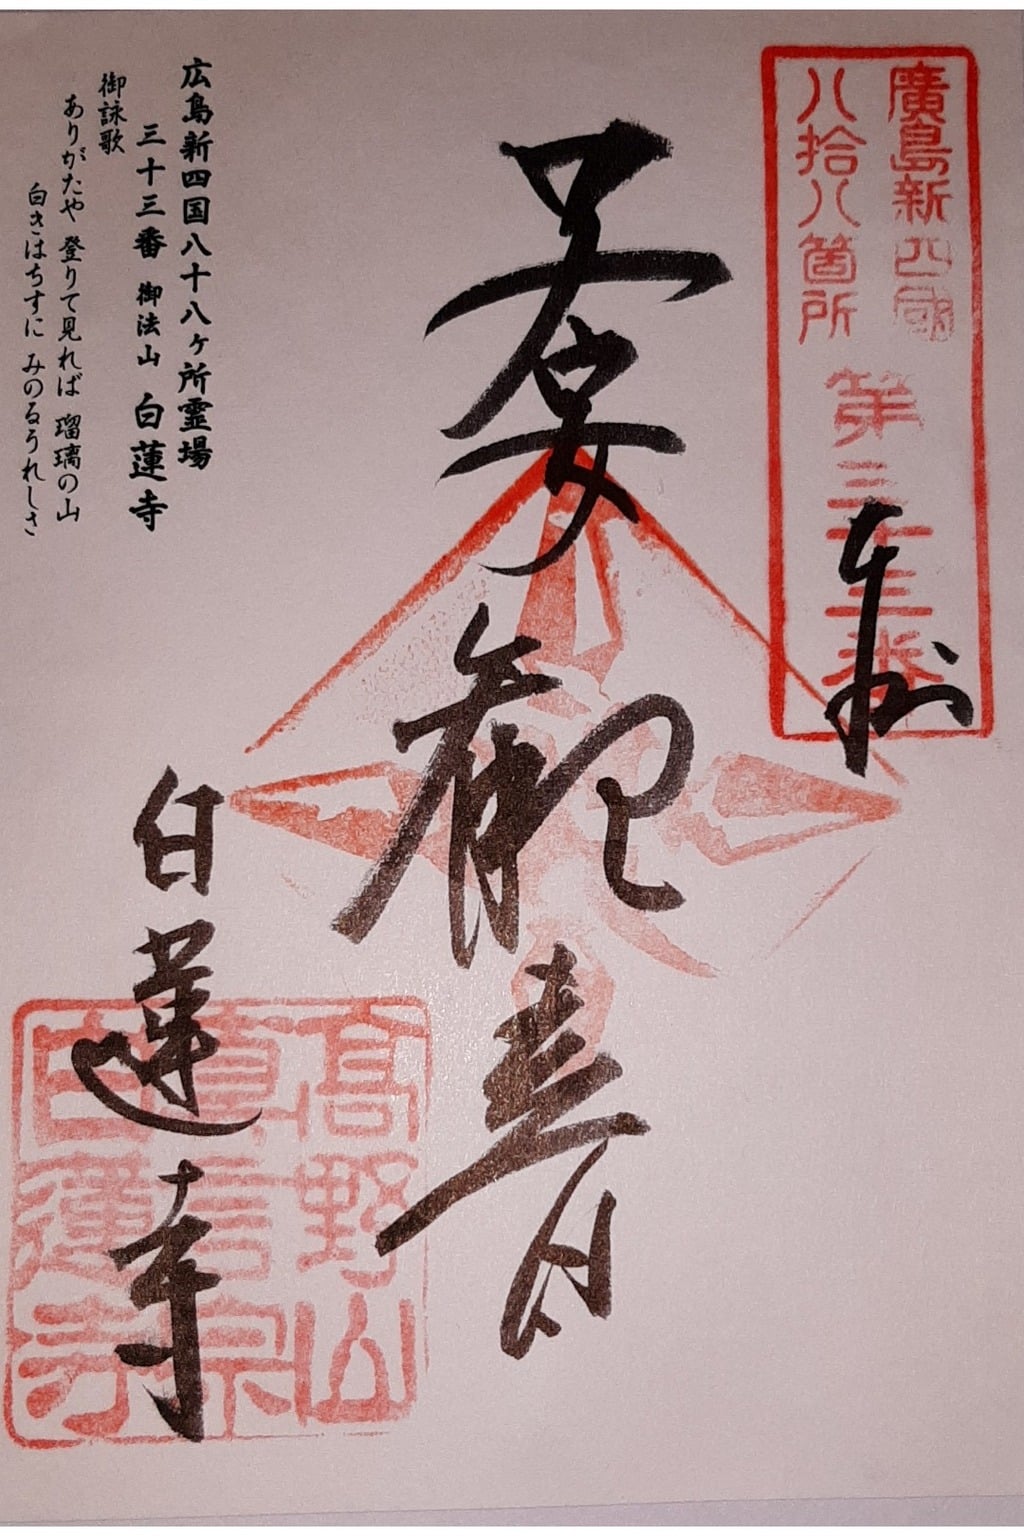 廣島新四國
八拾八箇所
第三十三番
奉拝
子安観音
白蓮寺
高野山
眞言宗
白蓮寺
広島新四国八十八ヶ所霊場
三十三番 御法山 白蓮寺
御詠歌
ありがたや 登りて見れば 瑠璃の山
白きはちすに みのるうれしさ